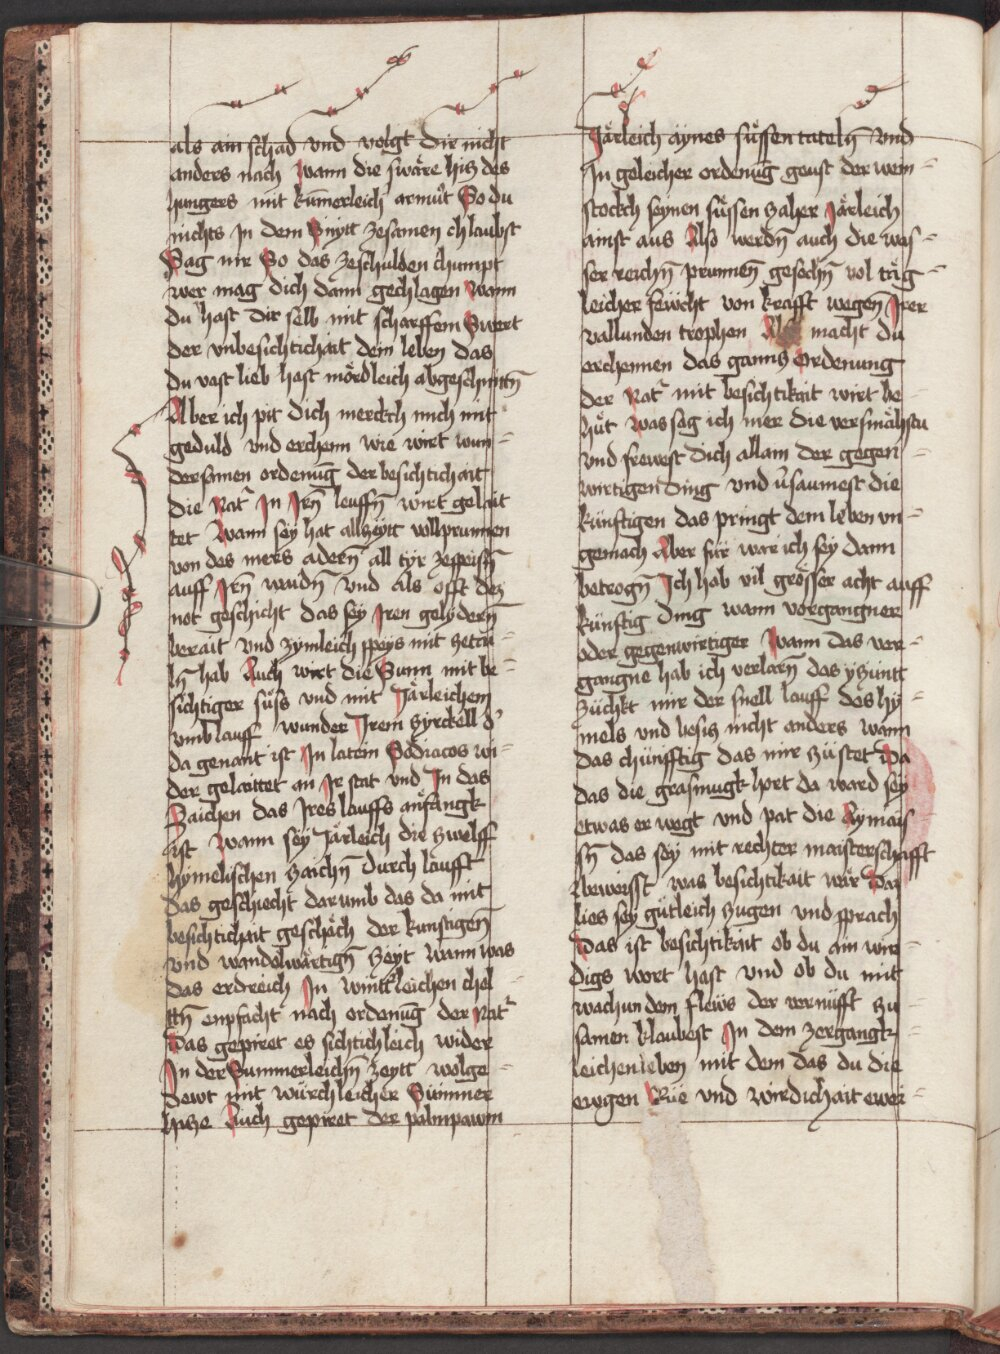 als ain schad vnd volgt dir nicht
anders nach wann die swäre hicz des
hungers mit kumerleich armůt So du
nichts jn dem Snytt zesamen chlaubst
Sag mir So das zeschulden chumpt
wer mag dich dann gechlagen wann
du hast dir selb mit scharffem Swert
der vnbesichtichait dein leben das
du vast lieb hast mördleich abgeschnittn̄
Aber ich pit dich merckch mich mit
geduld vnd erchenn wie wirt wun⸗
dersamen ordenūg der besichtichait
die Nat͛ In Irn̄ leuffn̄ wirt gelait
tet Wann sey hat allzeytt vollprunnen
von des mers adern̄ all tyr zespeisn̄
auff Irn̄ waidn̄ vnd als offt dez
not geschicht das sey Iren gelydern̄
berait vnd zymleich speys mit zetai⸗
ln̄ hab Auch wirt die Sunn mit be⸗
sichtiger süss vnd mit Järleichem
vmblauff wunder Irem zyrckell d͛
da genant ist In latein Zodiacos wi⸗
der gelaittet an Ir stat vnd In das
Zaichen das Ires lauffs anfangk
ist Wann sey Järleich die zwelff
hymelischen zaichn̄ durch laufft
das geschiecht darumb das da mit
besichtichait geschäch der kunftigen̄
vnd wandelwärtign̄ zeyt wann was
das erdreich In wintt͛leichen chel
ttn̄ enpfächt nach ordenūg der Nat͛
Das gepiret es sichtichleich wider
In der Summerleichn̄ zeytt wolge⸗
dewt mit würchleicher Summer
hicze Auch gepiret der palmpawm
Järleich aynes süssen tateln̄ vnd
In geleicher ordenūg geust der wein⸗
stockch seynen süssen zaher Järleich
ainst aus Also werdn̄ auch die was⸗
ser reichn̄ prunnen̄ gesechn̄ vol täg⸗
leicher fewcht von krafft wegen̄ Irer
vallunden trophen Also macht du
erchennen das gancz Ordenung
der Nat͛ mit besichtikait wirt be⸗
hüt Was sag ich mer die versmächstu
vnd frewest dich allain der gegen⸗
wirtigen ding vnd v͛saumest die
künftigen das pringt dem leben vn⸗
gemach Aber für war ich sey dann
betrogn̄ Ich hab vil grösser acht auff
künftig ding wann vergangner
oder gegenwirtiger Wann das ver⸗
gangne hab ich verlarn̄ das yczuntt
zückt mir der snell lauff des hy⸗
mels vnd besicz nicht anders wann
das chünfftig das mir zůstet Da
das die grasmugk hort da ward sey
etwas er wegt vnd pat die Aymais⸗
sn̄ das sey mit rechter maisterschafft
beweisst was besichtikait wär Das
lies sey gütleich zugen vnd sprach
Das ist besichtikait ob du ain wir⸗
digs wort hast vnd ob du mit
wachundem fleiws der vernüfft zu
samen klaubest In dem zergangk⸗
leichen leben mit dem das du die
ewigen Rüe vnd wirdichait ewer⸗